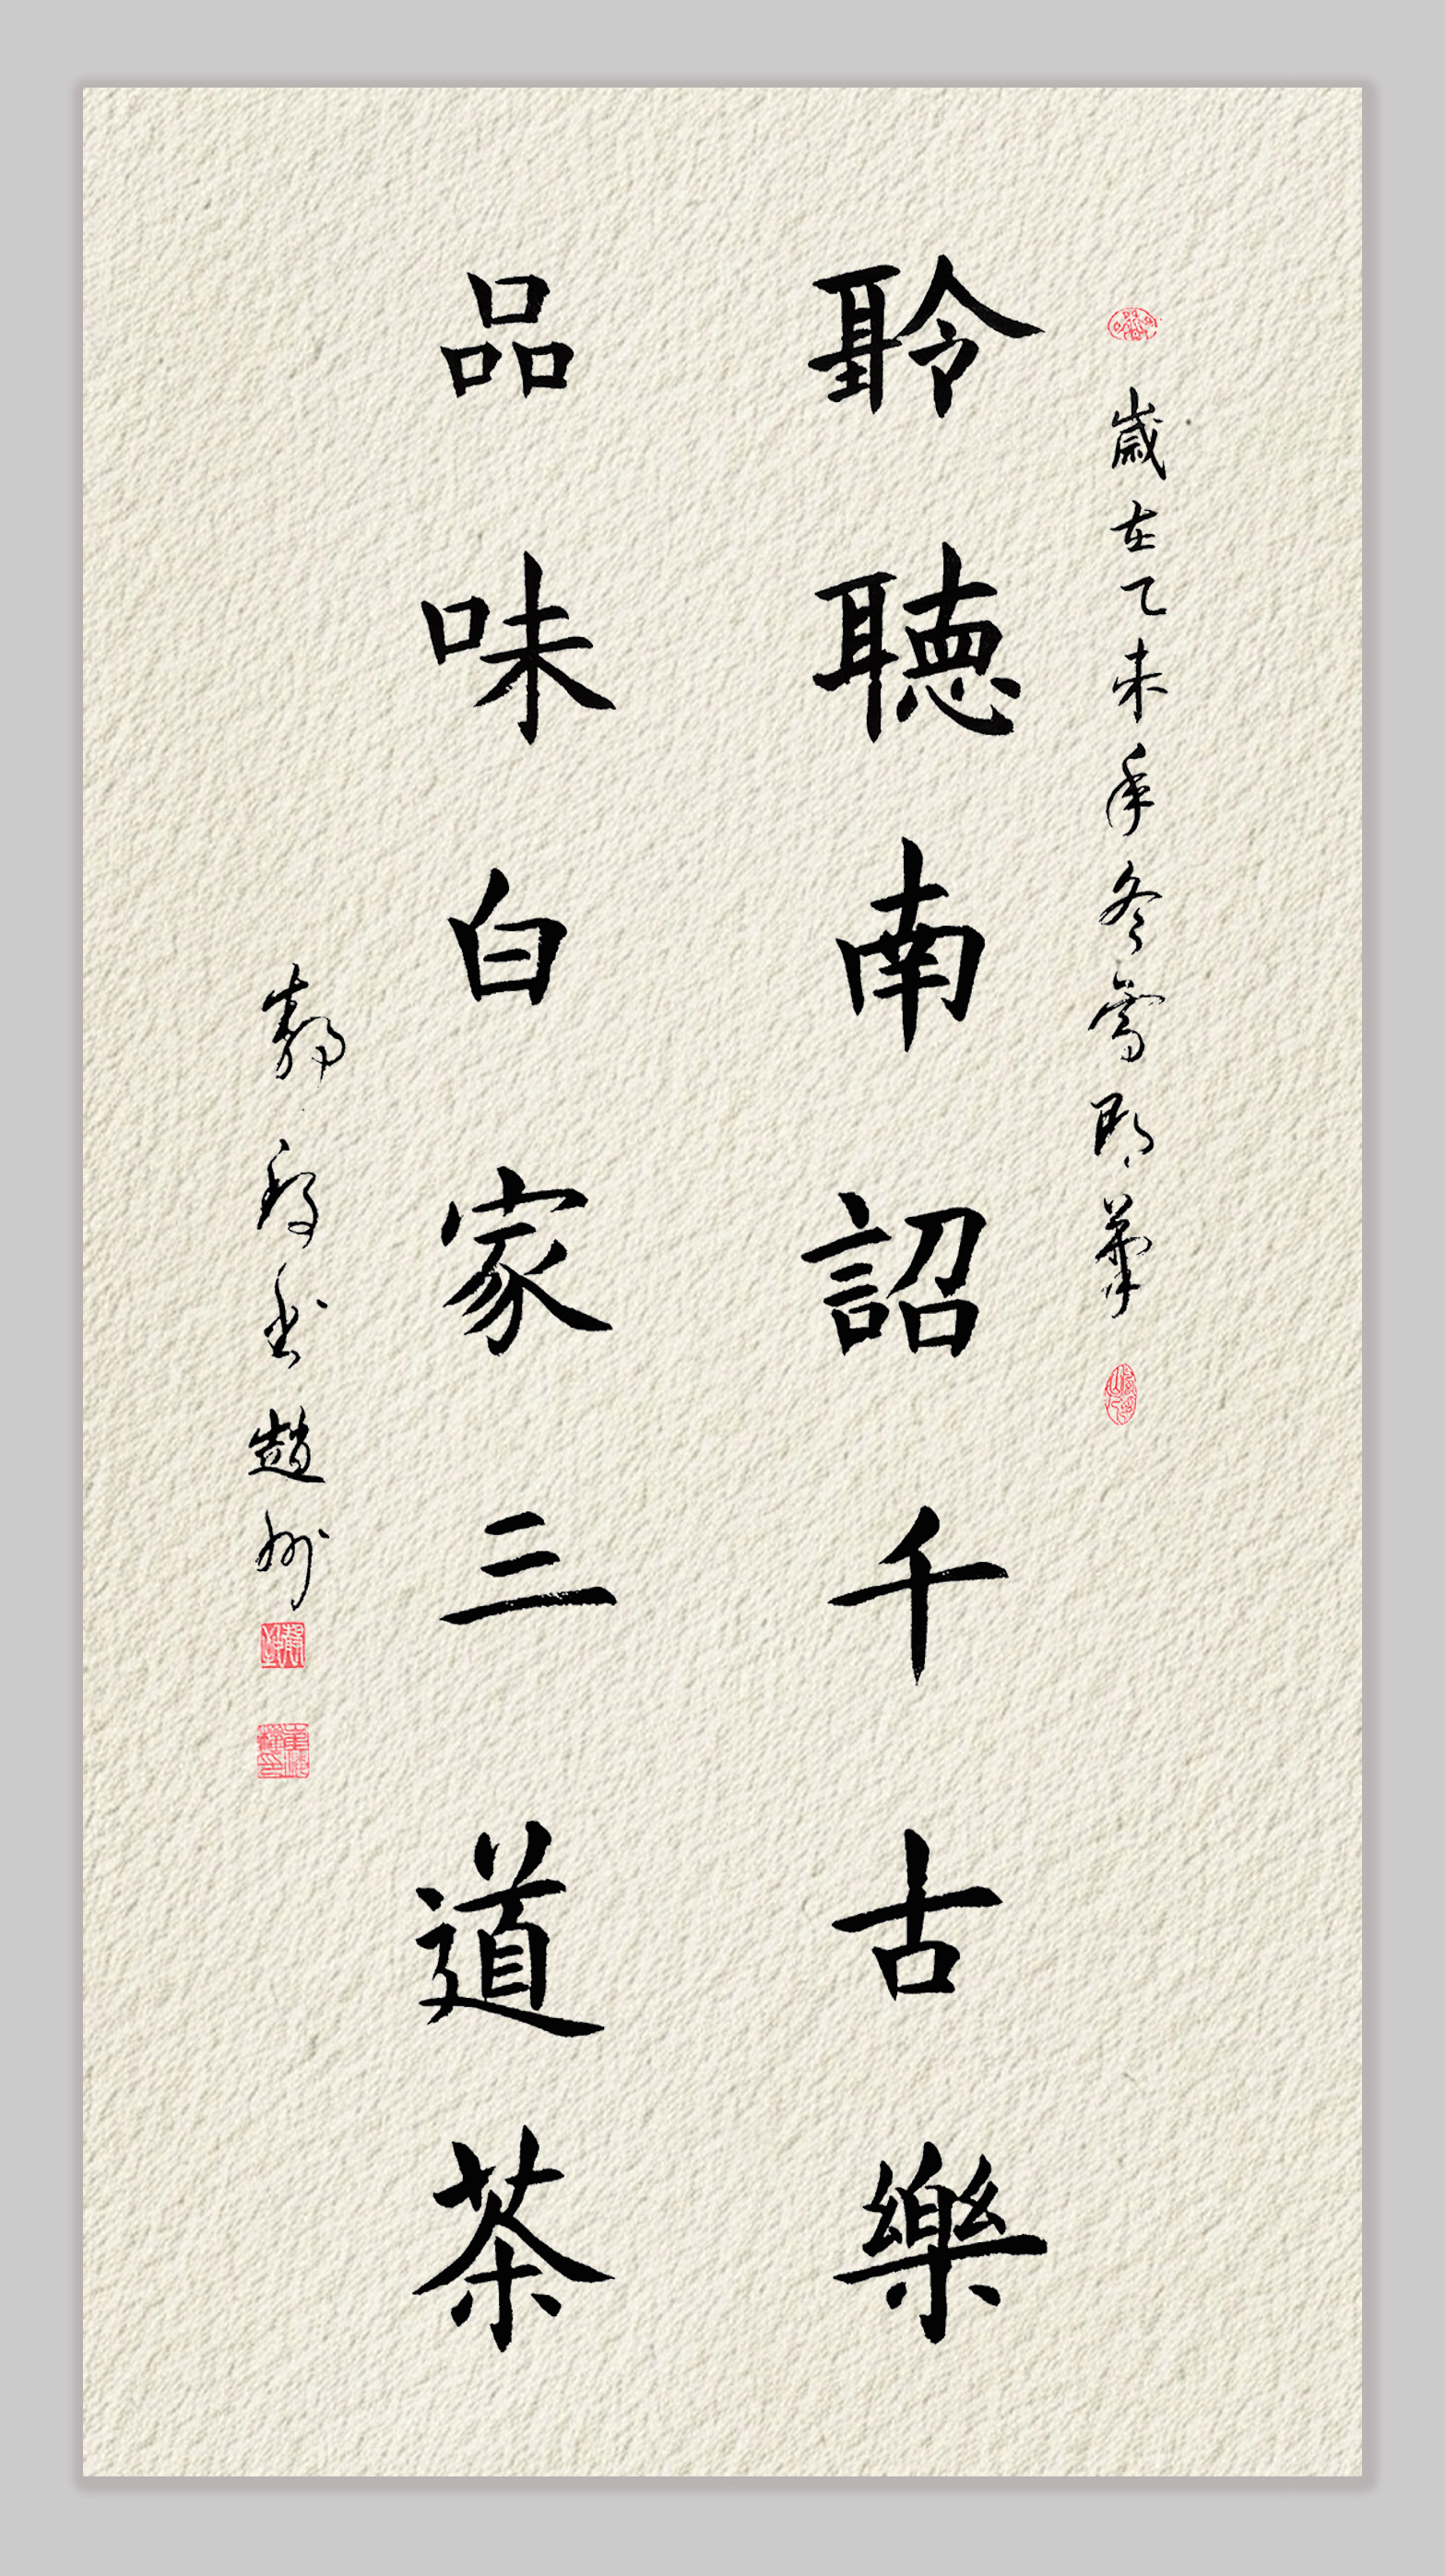 歲在乙未年冬雪即筆
聆聽南詔千古樂
品味白家三道茶
靜 書趙州